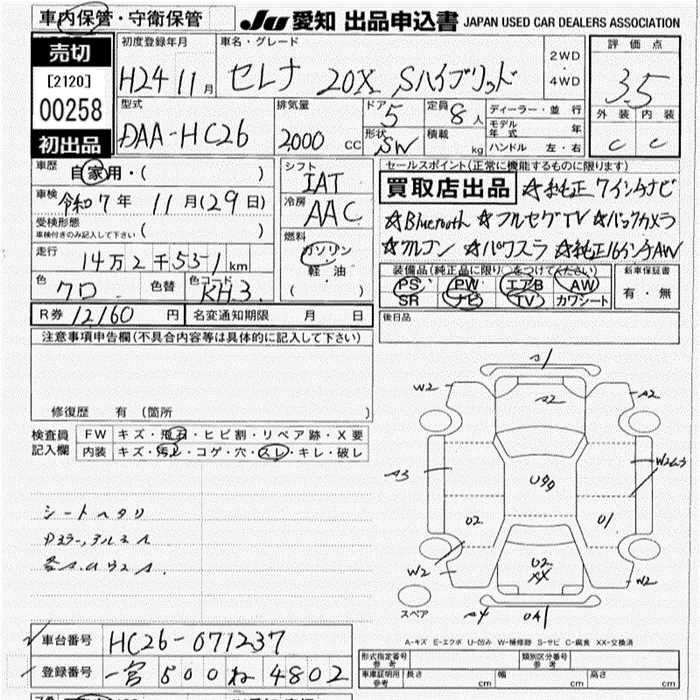 車内保管・守衛保管
JU 愛知 出品申込書 JAPAN USED CAR DEALERS ASSOCIATION
売切
[2120]
00258
初出品
初度登録年月
H24 11月
車名・グレード
セレナ 20X Sハイブリッド
2WD
・
4WD
評価点
3.5
外装 内装
C C
型式
DAA-HC26
排気量
2000 CC
ドア 5
形状 SW
定員 8人
積載 kg
ディーラー・並行
モデル年式 年
ハンドル 左・右
車歴
自家用・( )
車検
令和7年 11月(29日)
受検形態
車検付きのみ記入して下さい ( )
走行
14万2千551km
色
クロ
色替
色コード
KH3
シフト
IAT
冷房
AAC
燃料
ガソリン
・
軽油
( )
セールスポイント(正常に機能するものに限ります)
買取店出品 ☆純正7インチナビ
☆Bluetooth ☆フルセグTV ☆バックカメラ
☆クルコン ☆パワスラ ☆純正16インチAW
装備品(純正品に限り○をつけてください)
PS PW エアB AW
SR ナビ TV カワシート
新車保証書
有・無
R券 12160円 名変通知期限 月 日
後日品
注意事項申告欄(不具合内容等は具体的に記入して下さい)
修復歴 有 (箇所 )
検査員
記入欄
FW キズ・飛石・ヒビ割・リペア跡・X要
内装 キズ・汚れ・コゲ・穴・スレ・キレ・破レ
シートヘタリ
A1
W2
A2
A2
A3
U99
W2
02
01
W2
U2
XX
W2
A4
スペア
A-キズ E-エクボ U-凹み W-補修跡 S-サビ C-腐食 XX-交換済
車台番号 HC26-071237
登録番号 一宮 500 ね 4802
形式指定番号
参考
類別区分番号
参考
車庫証明用
参考
長さ cm 幅 cm 高さ cm